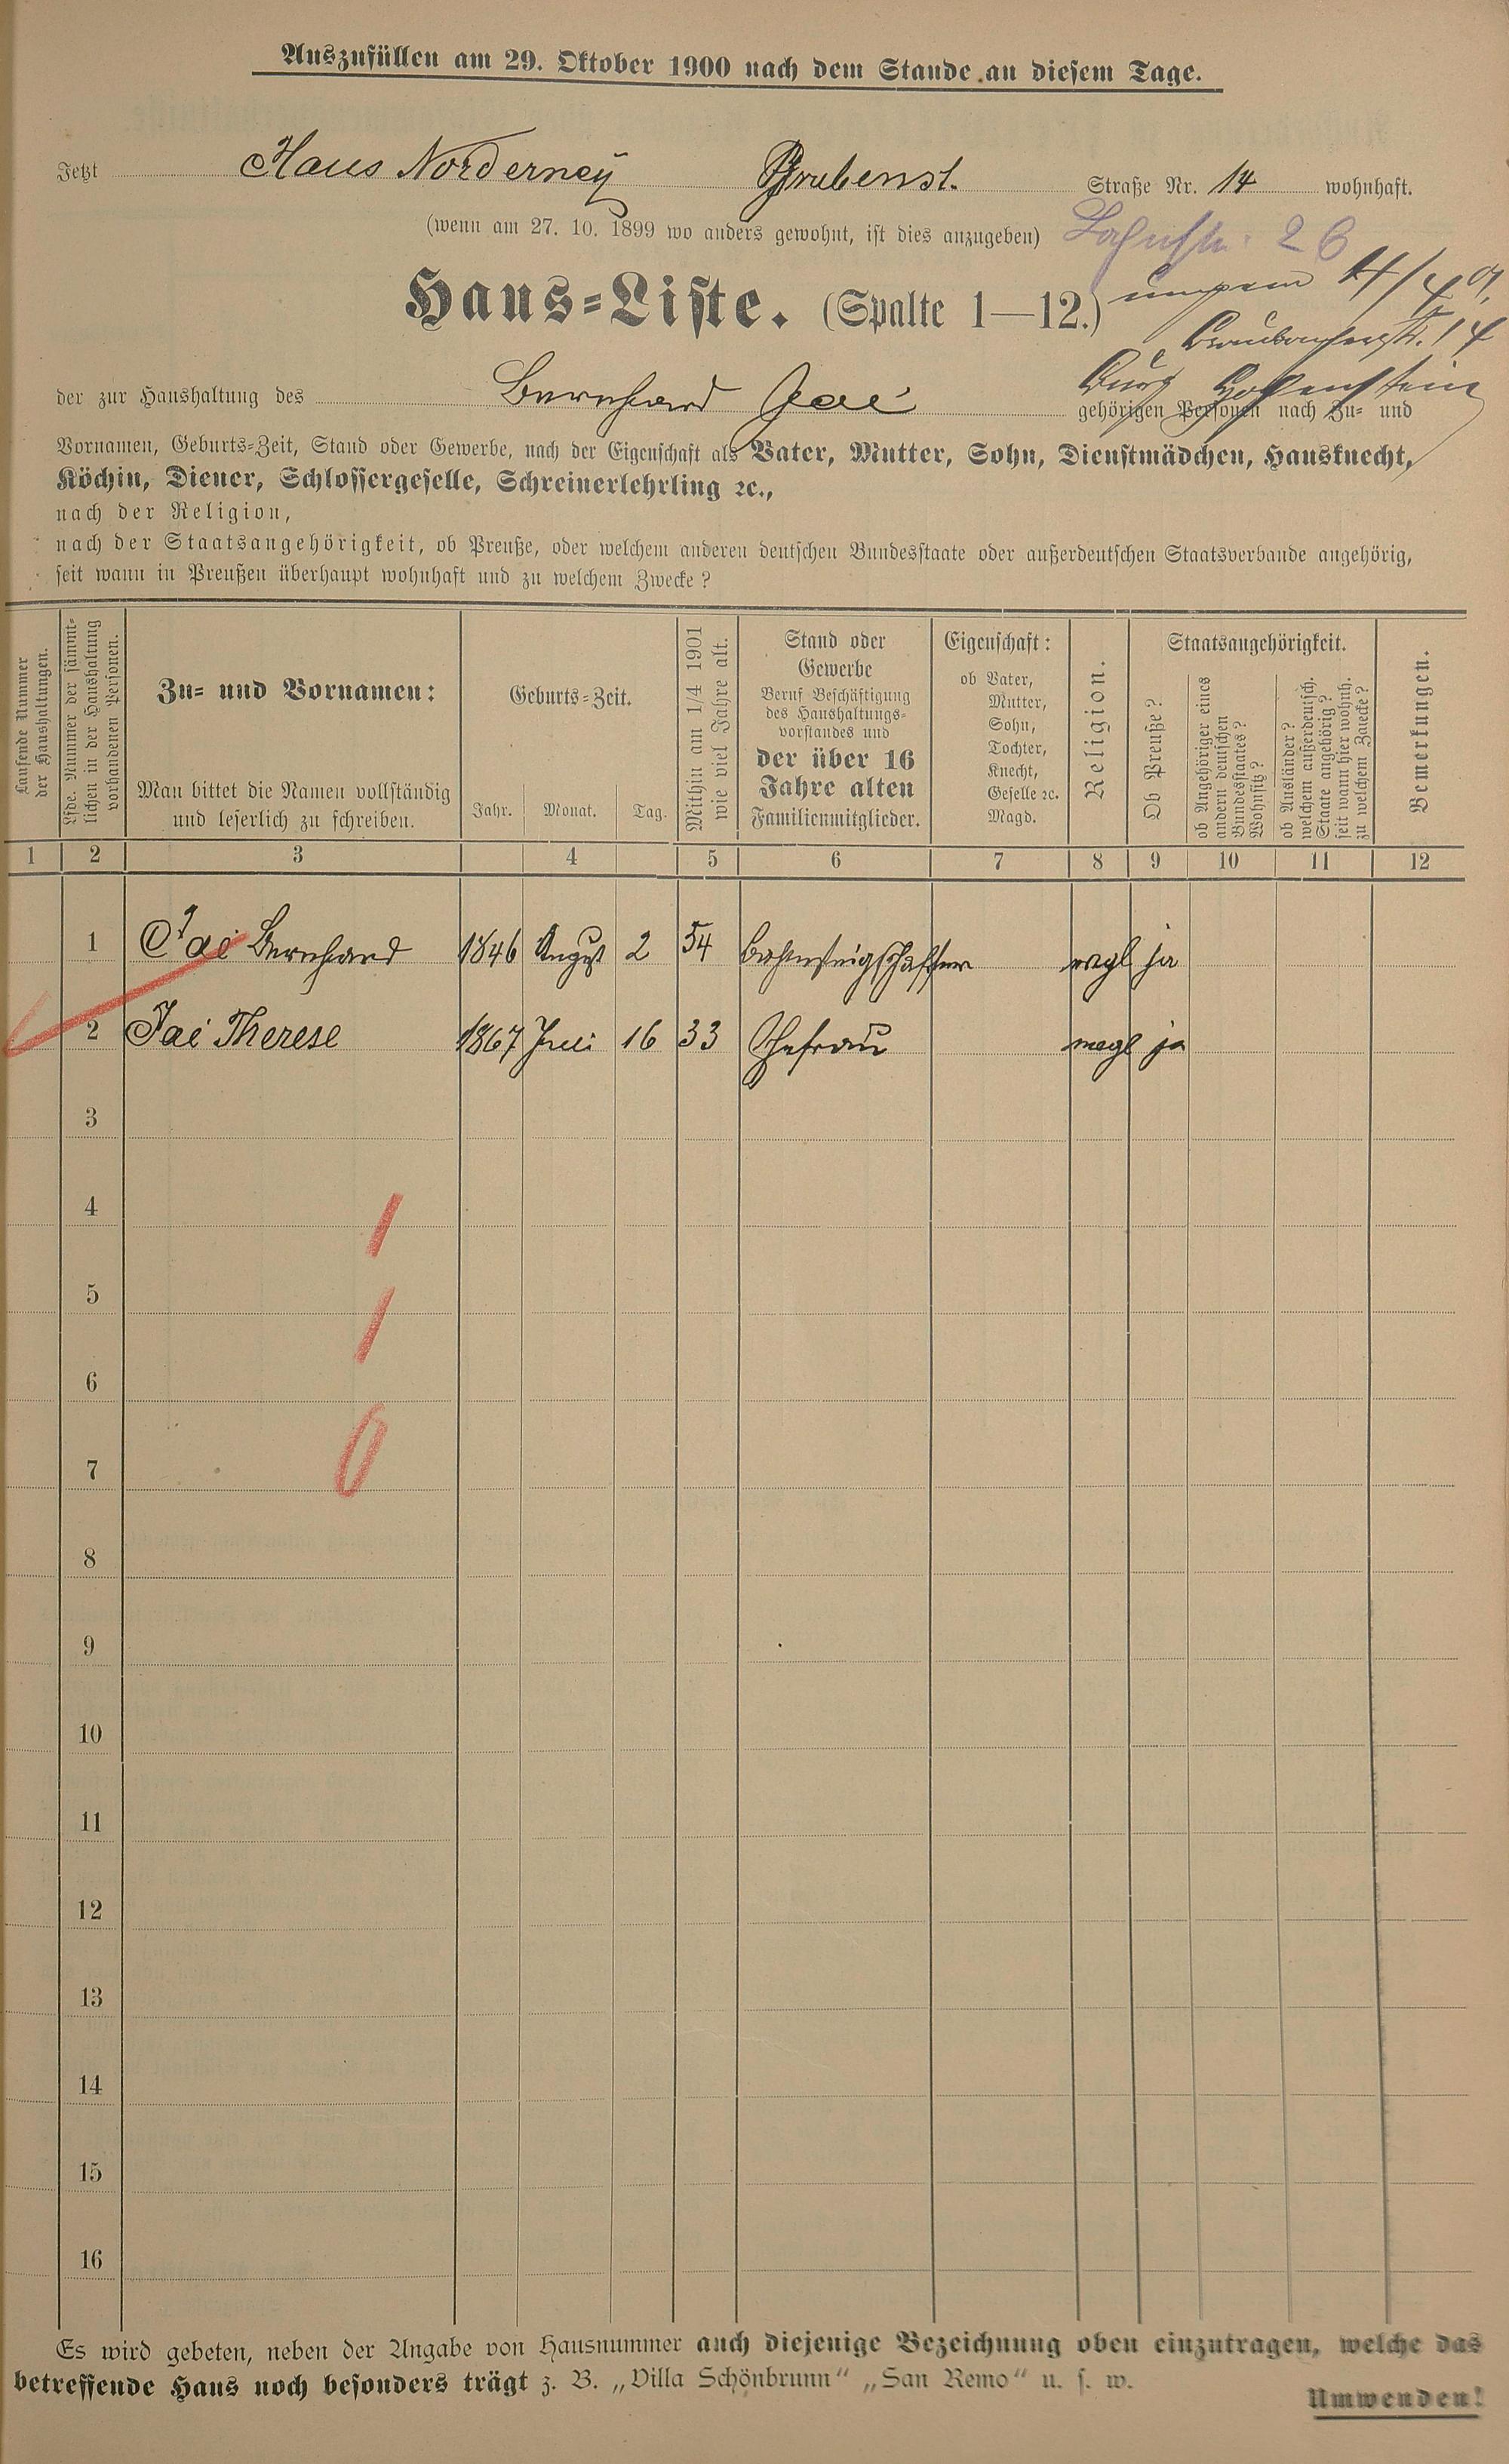 Auszufüllen am 29. Oktober 1900 nach dem Stande an diesem Tage.
Jetzt Haus Norderney Grubenst. Straße Nr. 14 wohnhaft.
(wenn am 27. 10. 1899 wo anders gewohnt, ist dies anzugeben) Lahnstr. 26
4/4 01.
Haus-Liste. (Spalte 1—12.)
Braubacherstr. 14
Burg Hohenstein
der zur Haushaltung des Bernhard Jai gehörigen Personen nach Zu- und
Vornamen, Geburts-Zeit, Stand oder Gewerbe, nach der Eigenschaft als Vater, Mutter, Sohn, Dienstmädchen, Hausknecht,
Köchin, Diener, Schlossergeselle, Schreinerlehrling ꝛc.,
nach der Religion,
nach der Staatsangehörigkeit, ob Preuße, oder welchem anderen deutschen Bundesstaate oder außerdeutschen Staatsverbande angehörig,
seit wann in Preußen überhaupt wohnhaft und zu welchem Zwecke?
Laufende Nummer
der Haushaltungen.
Lfde. Nummer der sämmt-
lichen in der Haushaltung
vorhandenen Personen.
Zu- und Vornamen:
Man bittet die Namen vollständig
und leserlich zu schreiben.
Geburts-Zeit.
Jahr. Monat. Tag.
Mithin am 1/4 1901
wie viel Jahre alt.
Stand oder
Gewerbe
Beruf Beschäftigung
des Haushaltungs-
vorstandes und
der über 16
Jahre alten
Familienmitglieder.
Eigenschaft:
ob Vater,
Mutter,
Sohn,
Tochter,
Knecht,
Geselle ꝛc.
Magd.
Religion.
Staatsangehörigkeit.
Ob Preuße?
ob Angehöriger eines
andern deutschen
Bundesstaates?
Wohnsitz?
ob Ausländer?
welchem außerdeutsch.
Staate angehörig?
seit wann hier wohnh.
zu welchem Zwecke?
Bemerkungen.
1 2 3 4 5 6 7 8 9 10 11 12
1 Jai Bernhard 1846 August 2 54 Bahnsteigschaffner evgl ja
2 Jai Therese 1867 Juli 16 33 Ehefrau ja
3
4 1
5 1
6
7 0
8
9
10
11
12
13
14
15
16
Es wird gebeten, neben der Angabe von Hausnummer auch diejenige Bezeichnung oben einzutragen, welche das
betreffende Haus noch besonders trägt z. B. „Villa Schönbrunn“ „San Remo“ u. s. w.
Umwenden!